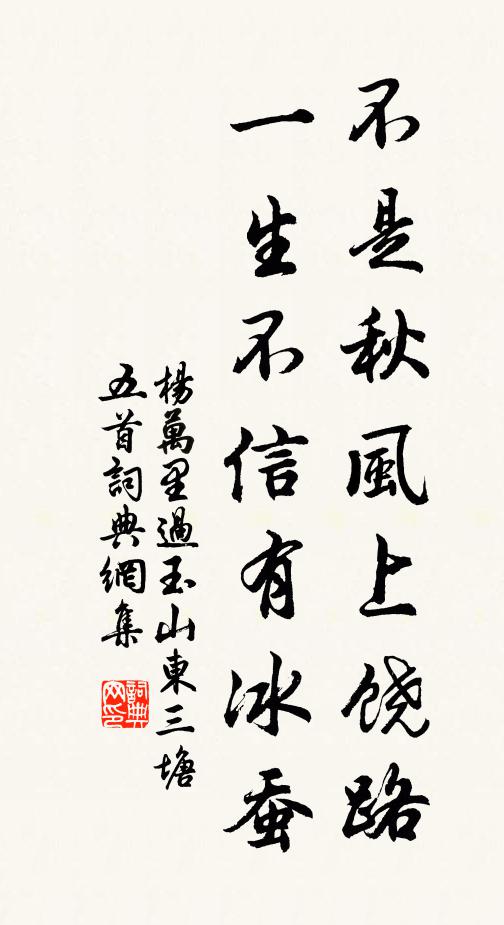 不是秋風上饶路
一生不信有冰蚕
楊萬里過玉山東三塘
五首詞典網集
詞典
网印